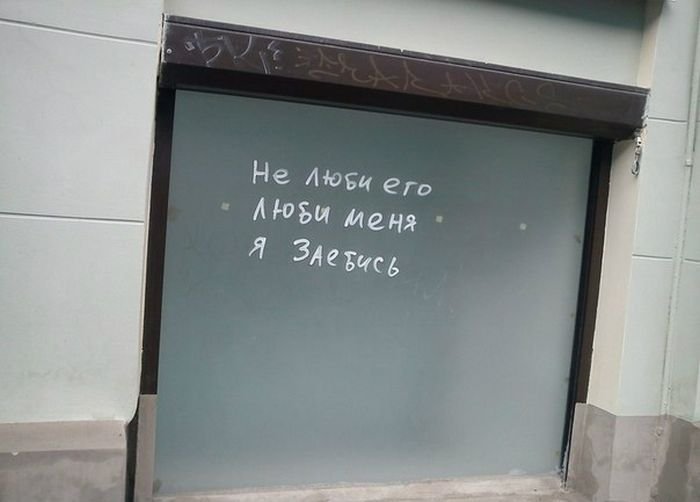 Не люби его
люби меня
я Заебись